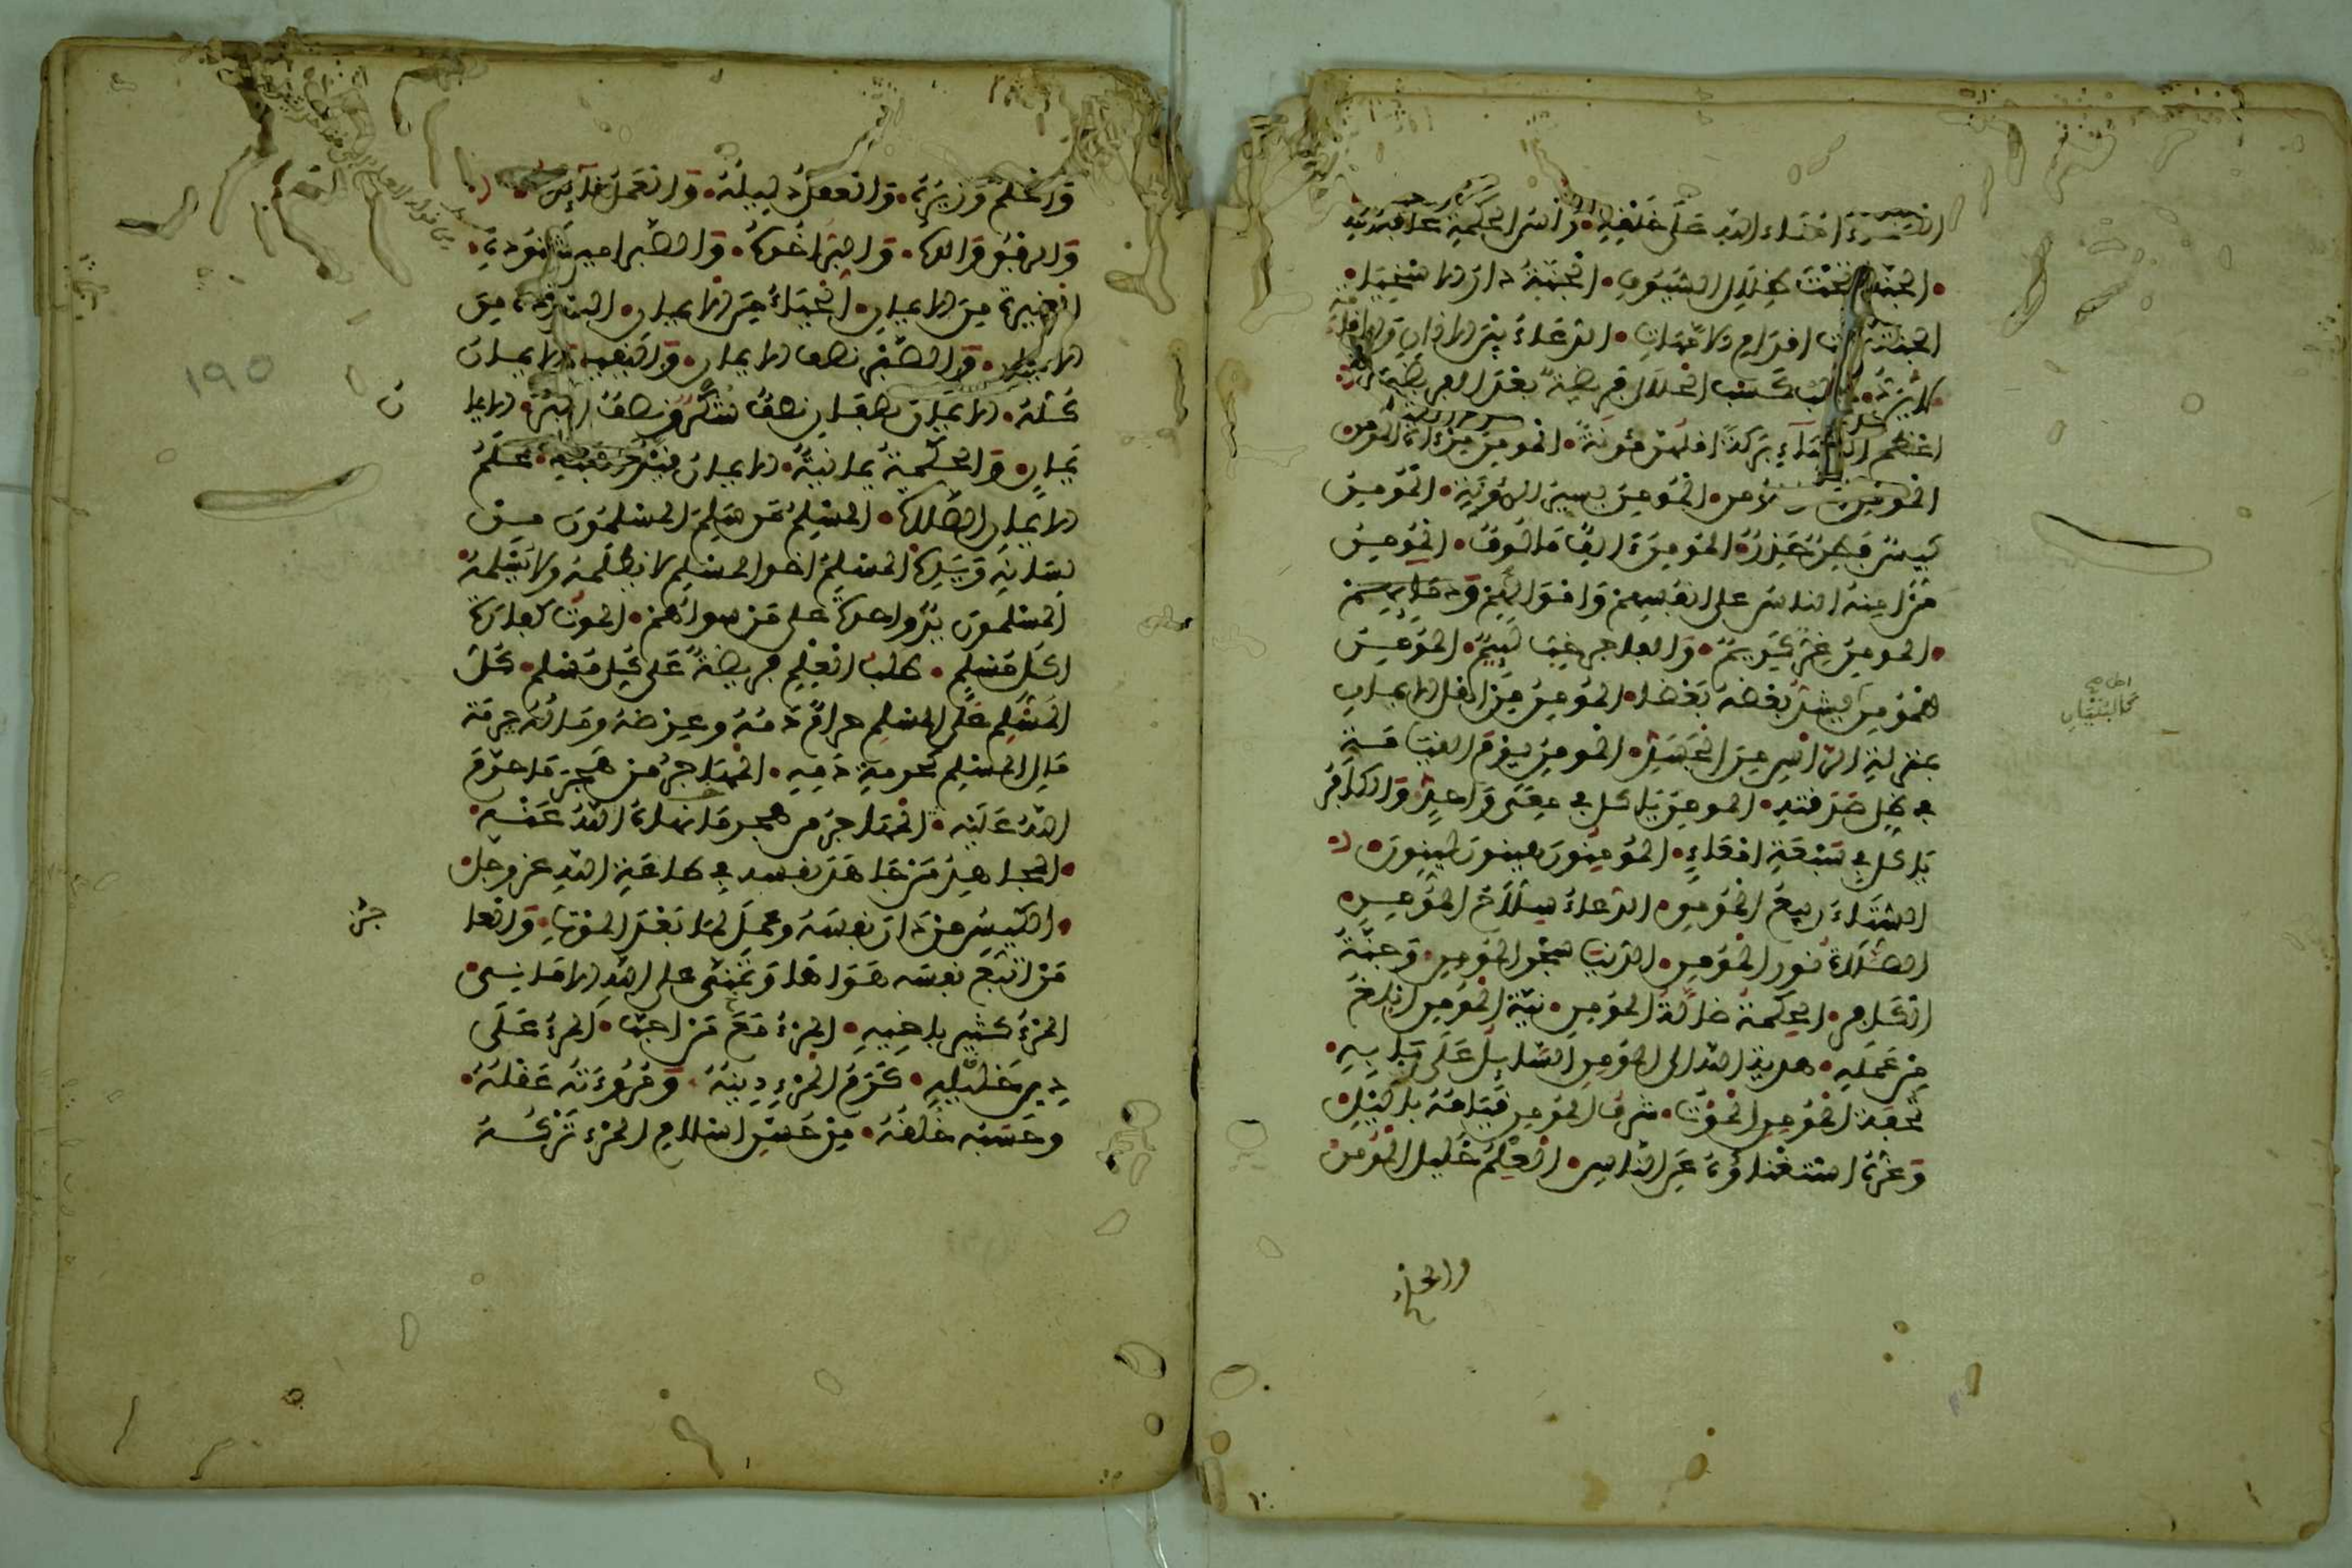 امناء الله على خلقه رأس الحكمة مخافة الله
الجنة تحت ظلال السيوف الجنة دار الاسخياء
الجنة تحت اقدام الامهات الدعاء بين الاذان والاقامة
لا يرد طلب كسب الحلال فريضة بعد الفريضة
اعظم النساء بركة اقلهن مئونة المومن مرءاة المومن
المومن المومن يسير المؤنة المومن
كيس فطن حذر المومن الف مالوف المومن
من امنه الناس على انفسهم واموالهم ودمايهم
المومن غر كريم والفاجر خب لئيم المومن
للمؤمن يشد بعضه بعضا المومن من اهل الايمان
بمنزلة الراس من الجسد المومن يوم القيامة
في ظل صدقته المومن ياكل في معى واحد والكافر
ياكل في سبعة امعاء المؤمنون هينون لينون
الشتاء ربيع المومن الدعاء سلاح المومن
الصلاة نور المومن الدنيا سجن المومن وجنة
الكافر الحكمة ضالة المومن نية المومن ابلغ
من عمله هدية الله الى المومن السايل على بابه
تحفة المومن الموت شرف المومن قيامه بالليل
وعزه استغناؤه عن الناس العلم خليل المومن
والحلم
والحلم وزيره والعقل دليله والعمل
والرفق والده والبر اخوه والصبر امير جنوده
الغيرة من الايمان الحياء من الايمان البذاذة من
الايمان والصبر نصف الايمان واليقين الايمان
كله الايمان نصفان نصف شكر ونصف صبر الايما
يمان والحكمة يمانية الايمان قيد الفتك علم
الايمان الصلاة المسلم من سلم المسلمون من
لسانه ويده المسلم اخو المسلم لا يظلمه ولا يسلمه
المسلمون يد واحدة على من سواهم الموت كفارة
لكل مسلم طلب العلم فريضة على كل مسلم كل
المسلم على المسلم حرام دمه وعرضه وماله حرمة
مال المسلم كحرمة دمه المهاجر من هجر ما حرم
الله عليه المهاجر من هجر ما نهاه الله عنه
المجاهد من جاهد نفسه في طاعة الله عز وجل
الكيس من دان نفسه وعمل لما بعد الموت والعا
جز
من اتبع نفسه هواها وتمنى على الله الامانى
المرء كثير باخيه المرء مع من احب المرء على
دين خليله كرم المرء دينه ومروءته عقله
وحسبه خلقه من حسن اسلام المرء تركه